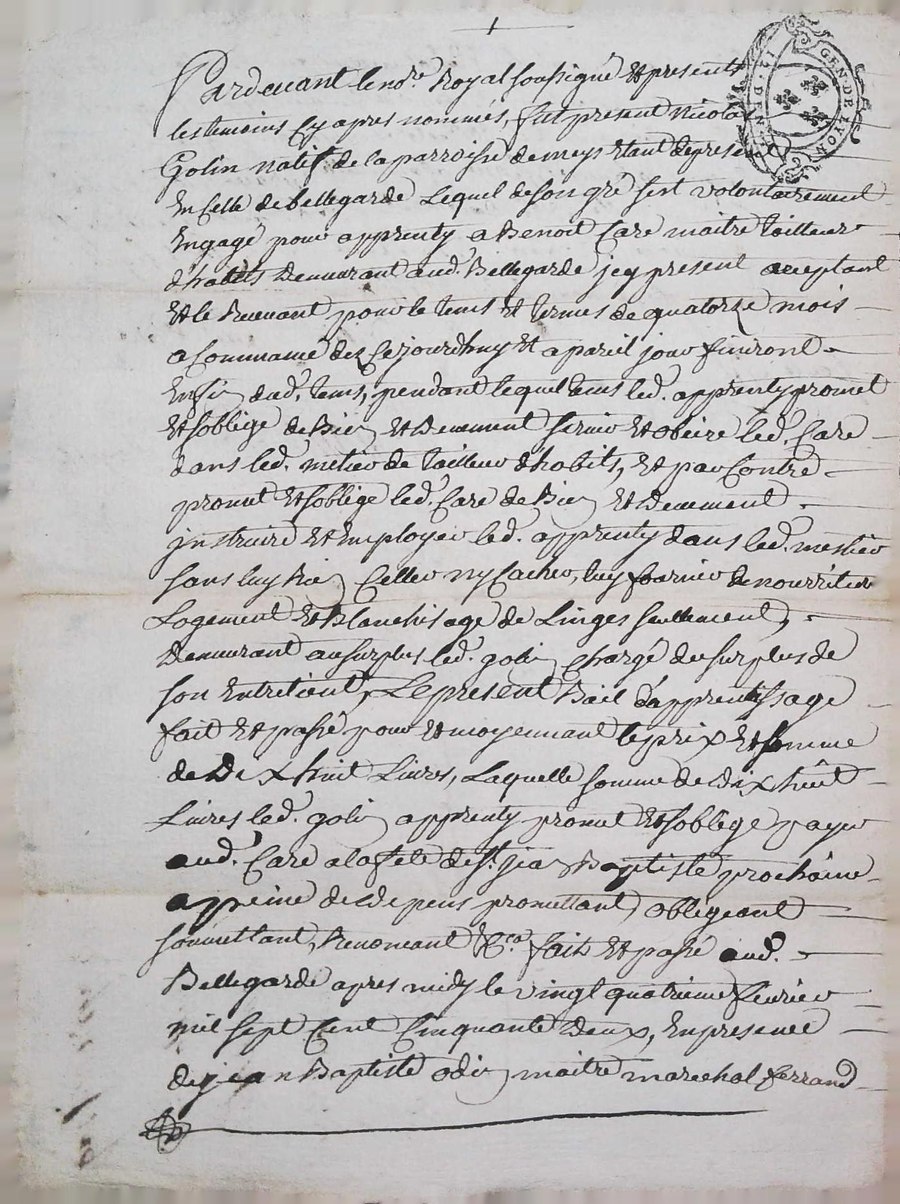 GEN. DE LYON
Pardevant le no.re Royal soussigné et presents
les temoins cy apres nommés, fut present Nicola
Golin natif de la parroisse de meys etant de prese
en celle de bellegarde Lequel de son gré s'est volontairement
Engagé pour apprenty a Benoit Care maitre tailleur
d'habits Demeurant aud. Bellegarde jcy present acceptant
et le Recevant pour le tems et termes de quatorze mois
a Commancé dez Cejourdhuy et a pareil jour finiront
Enfin dud. tems, pendant lequel tems led. apprenty promet
et soblige de Bien et Deuement servir et obeire led. Care
dans led. metier de tailleur d'habits, et par Contre
promet et soblige led. Care de Bien et Deuement
jnstruire et Employer led. apprenty dans led. mestier
sans luy Rien Celler ny Cacher, luy fournier de nourriture
Logement et Blanchisage de Linges seullement,
Demeurant au surplus led. golin chargé du surplus de
son Entretient, Le present Bail d'apprentissage
fait et passé pour et moyennant le prix et somme
de Dix huit Livres, Laquelle somme de dix huit
Livres led. golin apprenty promet et soblige payer
aud. Care a la fete de St. jean Baptiste prochaine
a peine de depens promettant, obligeant
soumettant, Renonceant &ca. fait et passé aud.
Bellegarde apres midy le vingt quatrieme fevrier
mil sept Cent Cinquante Deux, En presence
de jean Baptiste odin maitre marechal ferrand